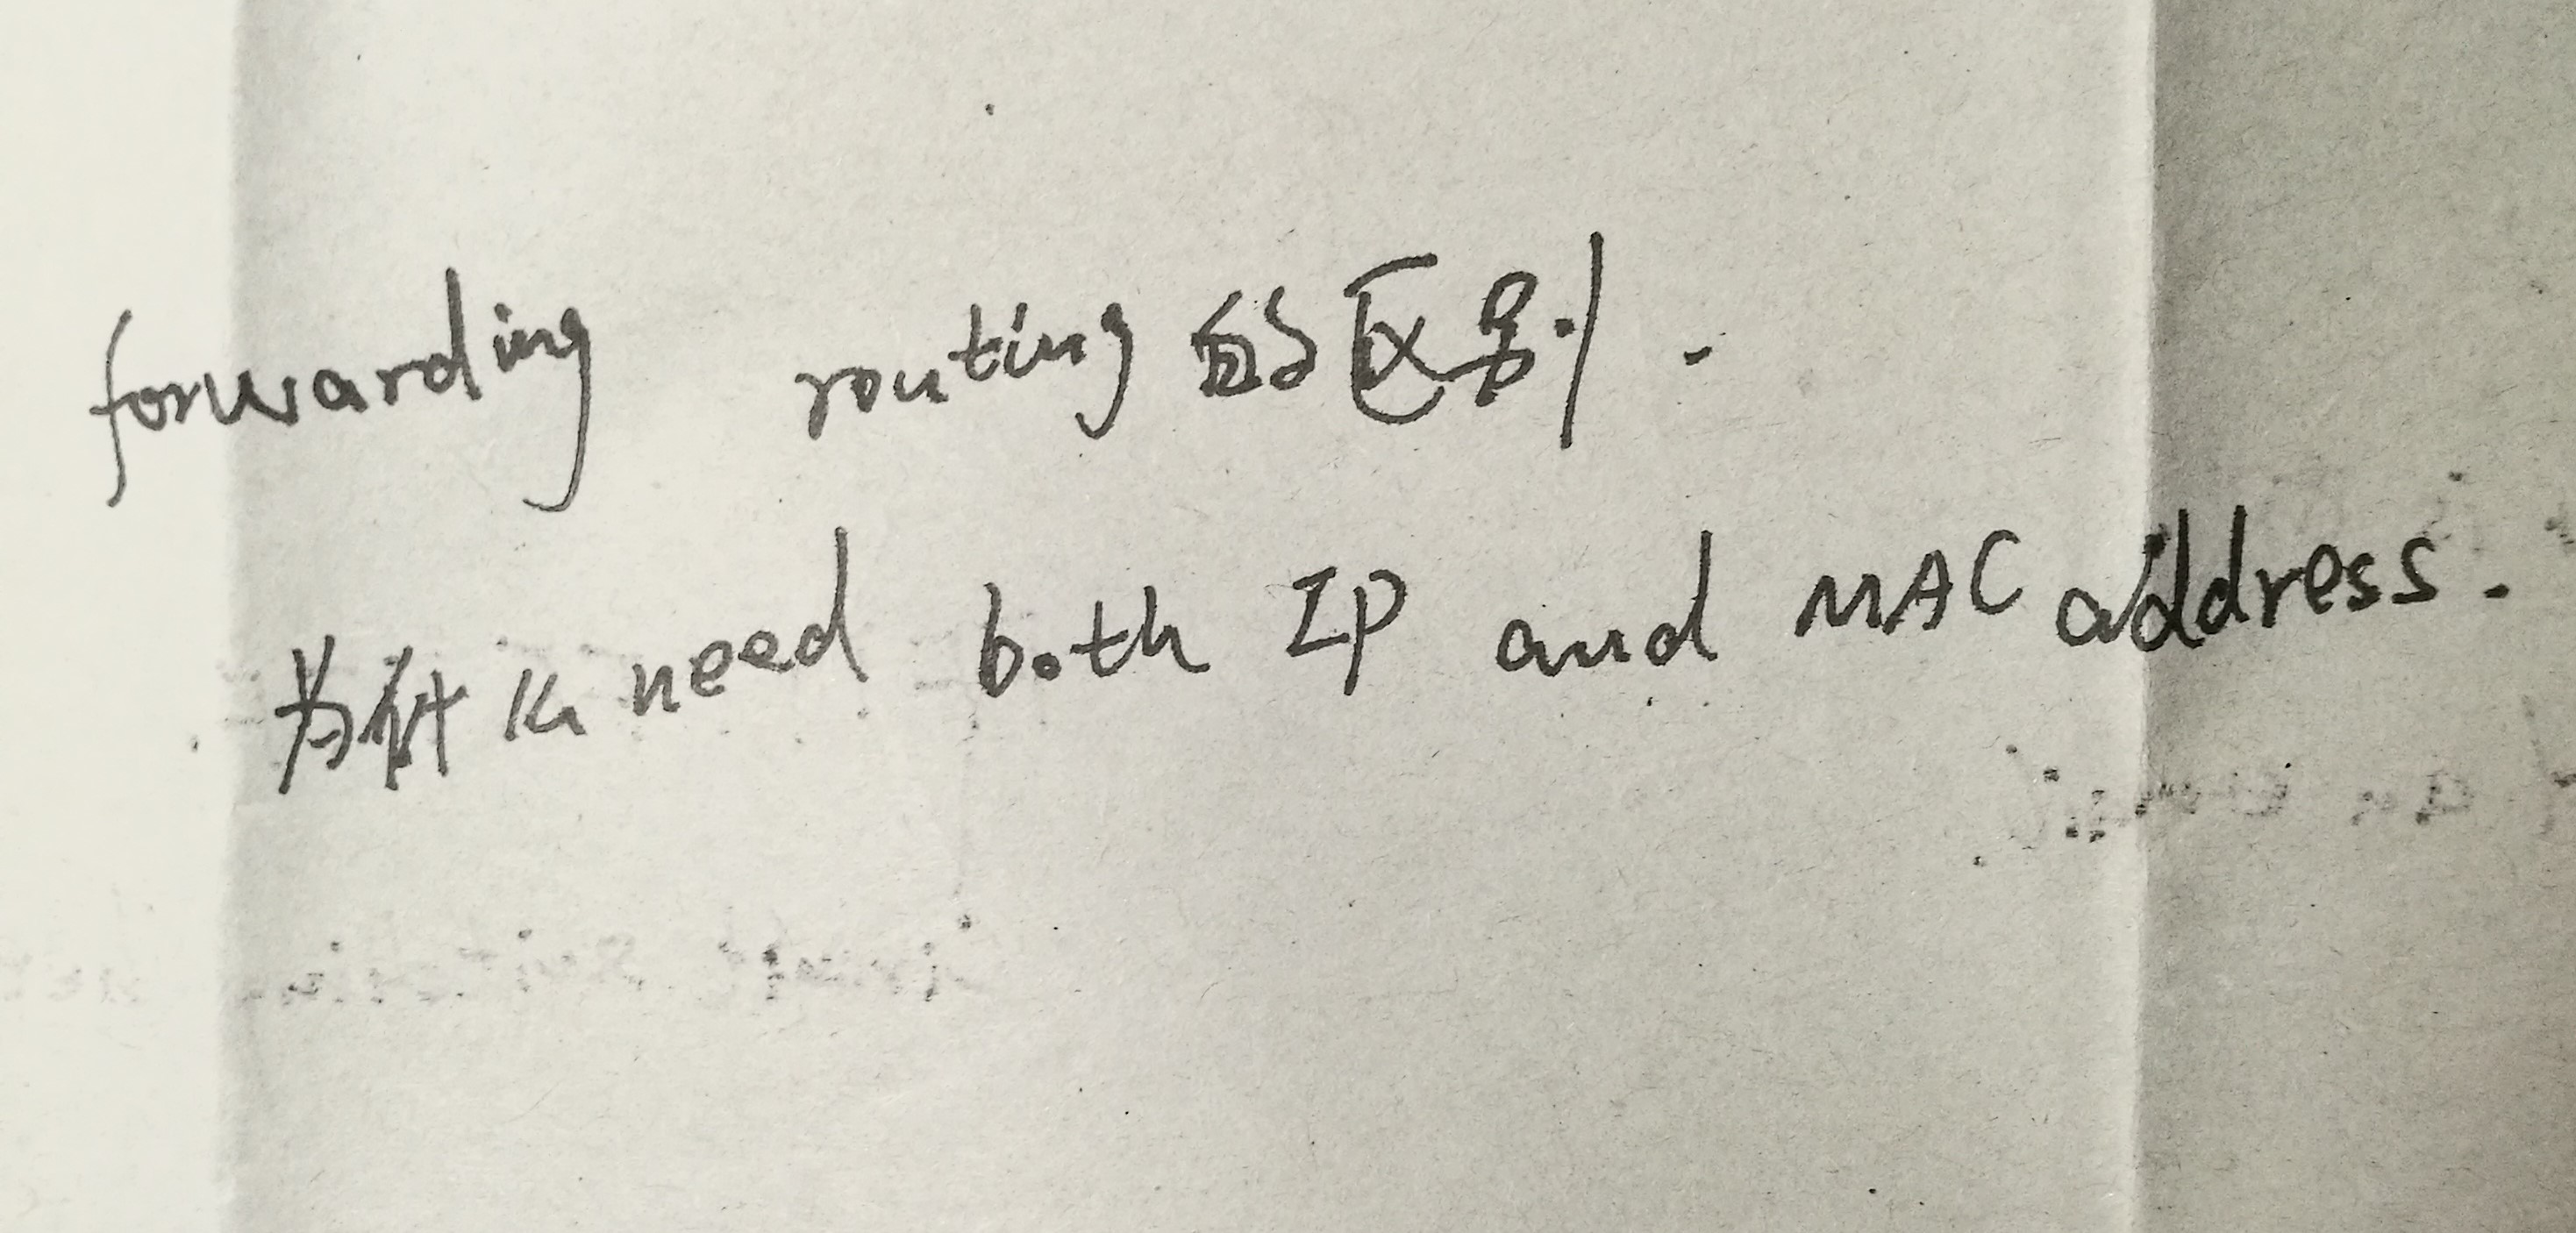 forwarding routing 的区别.
为什么 need both IP and MAC address.